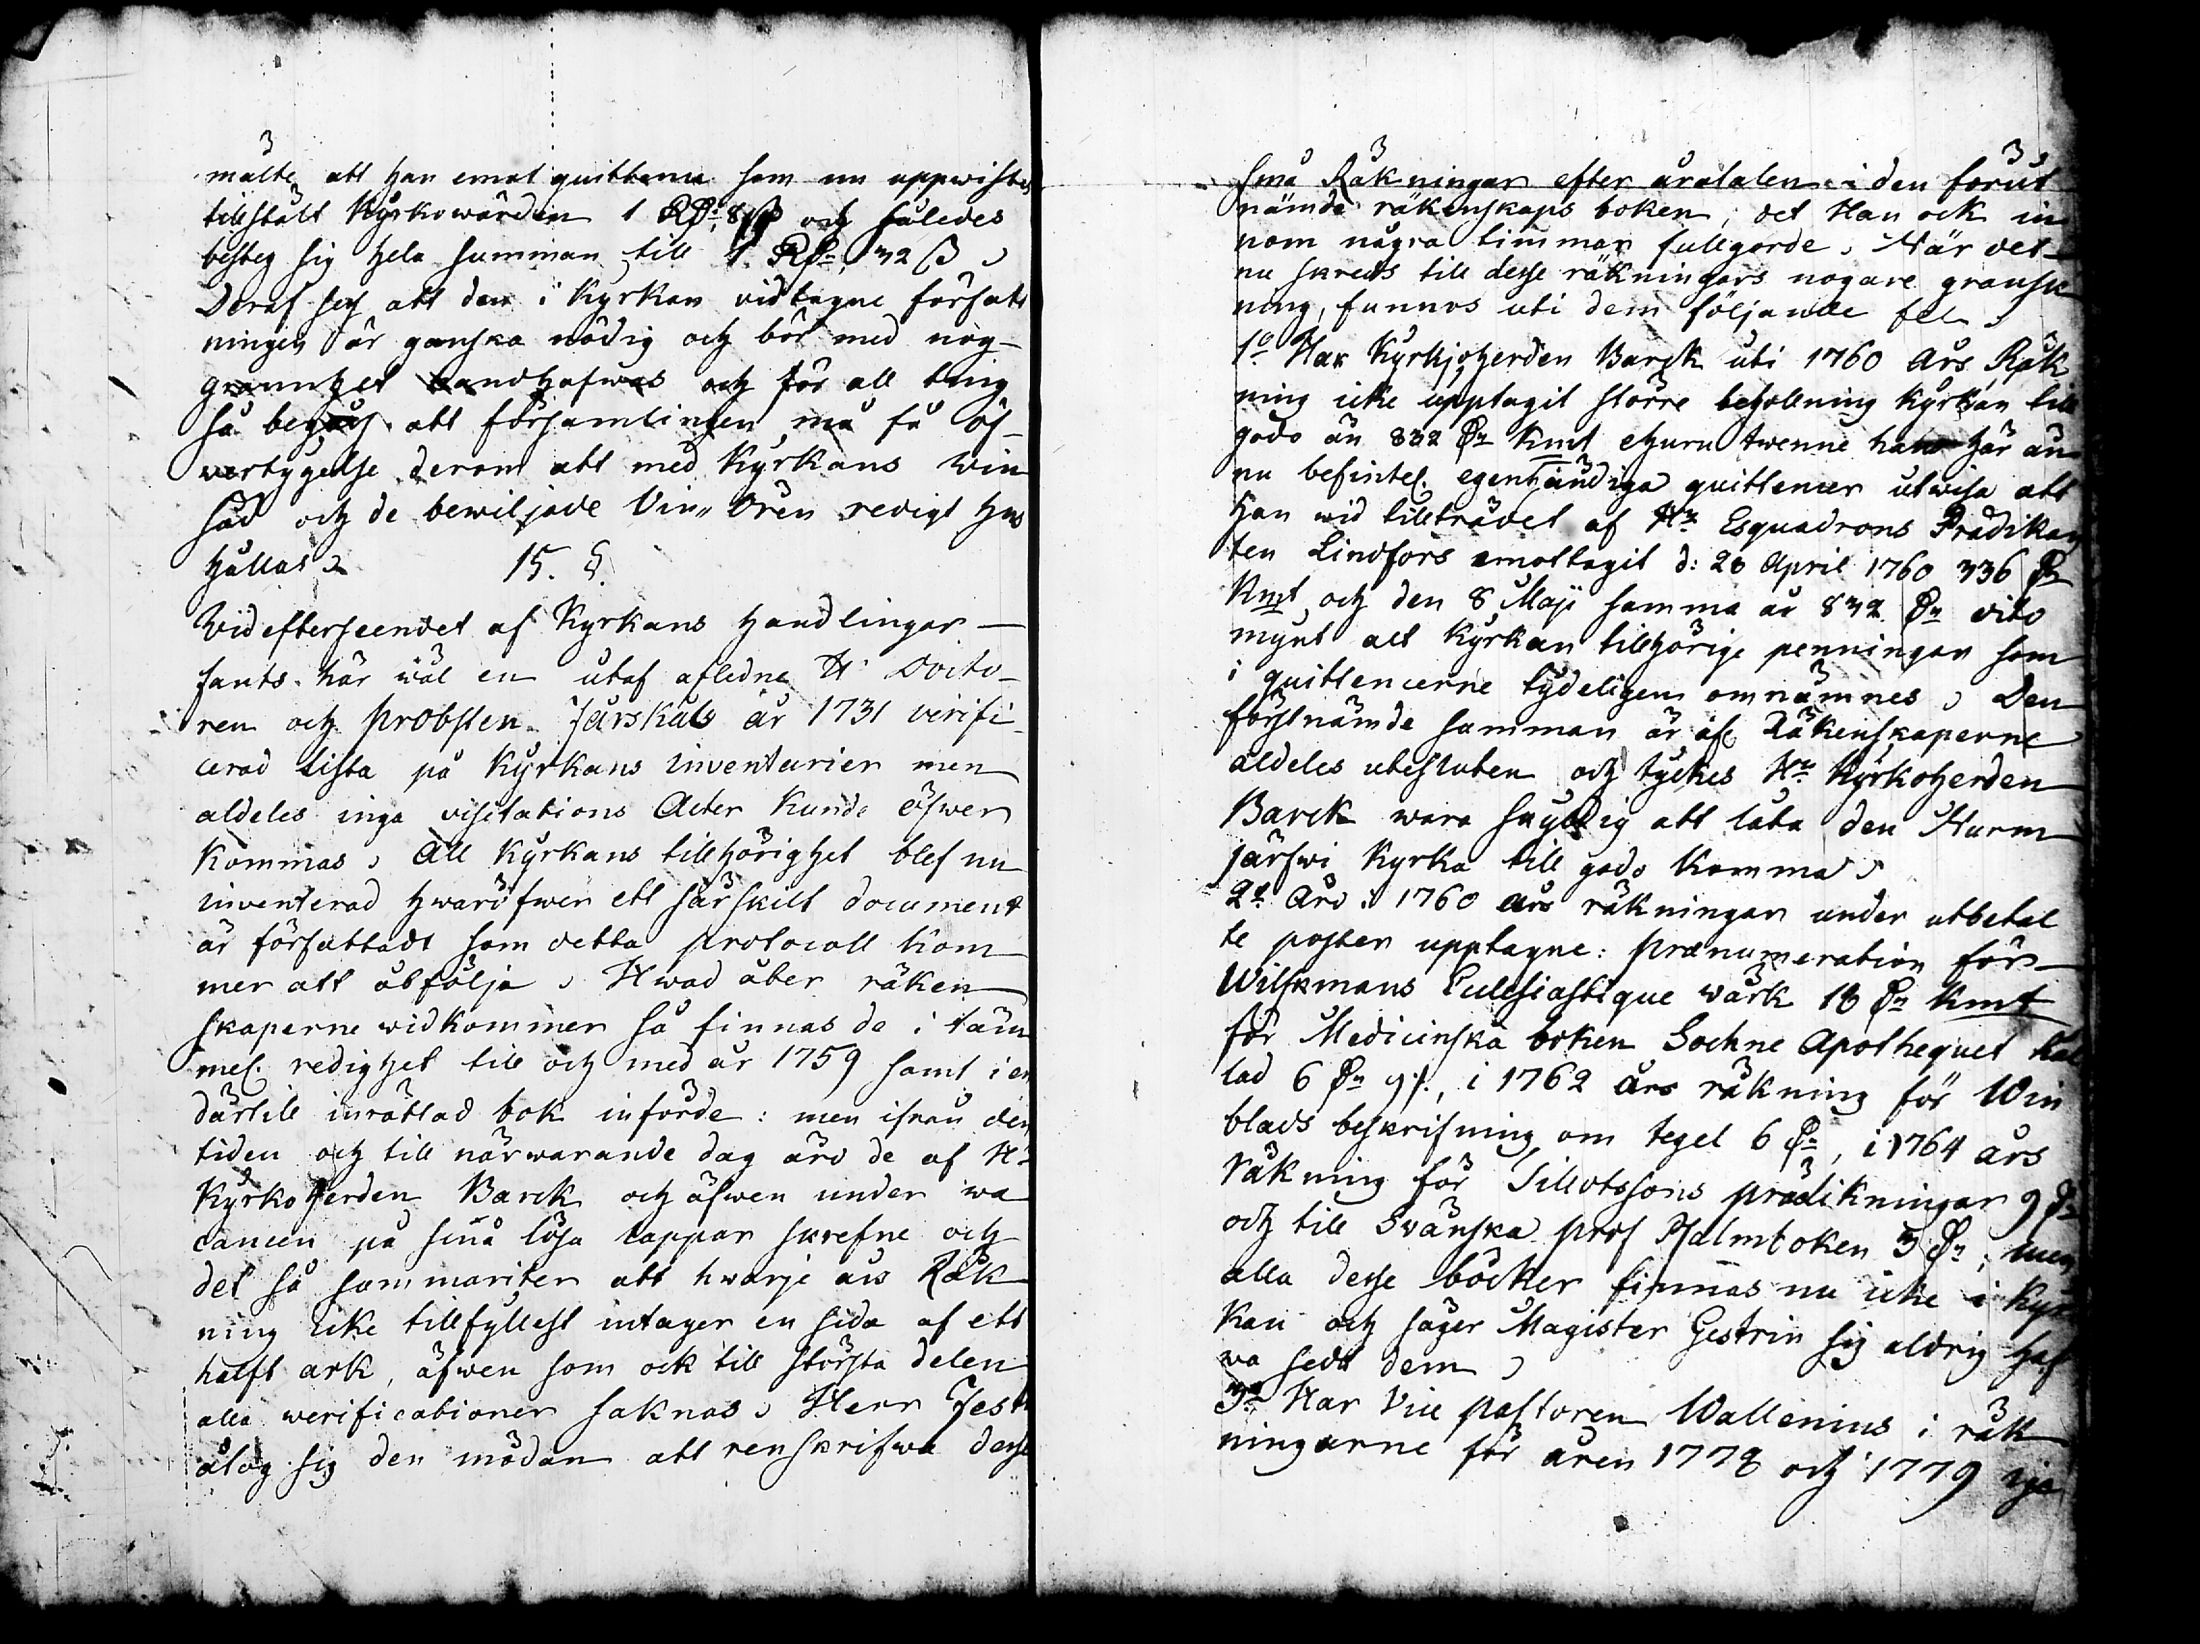 mälte att han emot quittence som nu uppwistes
tillstält Kyrkowärden 1 RDr 8 ß och således
besteg sig hela summan till 1 RDr 32 ß.
Deraf ses att den i Kyrkan vidtagne författ
ningen är ganska nödig och bör med nog-
grannhet handhafwas och för all ting
så att församlingen må få öf-
vertygelse derom att med Kyrkans win
säd och de bewiljade Vin-ören redigt hus
hållas.
15. §.
Vid efterseendet af Kyrkans handlingar
fants här wäl en utaf aflidne H. Docto-
ren och probsten år 1731 verifi-
cerad lista på Kyrkans inventarier men
aldeles inga visitations Acter kunde öfwer
kommas. All Kyrkans tillhörighet blef nu
inventerad hwaröfwer ett särskilt document
är författadt som detta protocoll kom
mer att åtfölja. Hwad åter räken
skaperne widkommer så finnas de i täm
mel. redighet till och med år 1759 samt i en
därtill inrättad bok införde: men ifrån den
tiden och till närwarande dag äro de af Hr
Kyrkoherden Barck och äfwen under wa
cancen på små lösa lappar skrefne och
det så summariter att hwarje års Räk
ning icke tillfyllest intager en sida af ett
halft ark, äfwen som ock till största delen
alla werificationer saknas. Herr Gest
åtog sig den mödan att renskrifwa desse
små Räkningar efter åratalen i den förut
nämde räkenskaps boken, det Han ock in
nom några timmar fullgorde. När det
nu skreds till desse räkningars nogare gransk
ning, funnos uti dem följande fel.
1o Har Kyrkjoherden Barck uti 1760 års Räk
ning icke upptagit större behollning Kyrkan till
godo än 832 Dr Kmt ehuru twenne här än
nu befintel. egenhändiga quittencer utwisa att
Han wid tillträdet af Hr Esquadrons Prädikan
ten Lindfors emottagit d: 28 April 1760 336 Dr
Kmt och den 8 Maji samma år 832 Dr dito
mynt alt Kyrkan tillhörige penningar som
i quittencerne tydeligen omnämnes. Den
förstnämde summan är af Räkenskaperne
aldeles utesluten och tyckes Hr Kyrkoherden
Barck wara skyldig att låta den Nurm
järfwi Kyrka till godo komma.
2o Äro i 1760 års räkningar under utbetal
te poster upptagne: prænumeration för
Wilskmans Ecclesiastique wärk 18 Dr Kmt
för Medicinska boken Sockne Apothequet kal
lad 6 Dr, i 1762 års räkning för Win
blads beskrifning om tegel 6 Dr, i 1764 års
räkning för Tillotssons prädikningar 9 Dr
och till Svänska prof Psalmboken 3 Dr; men
alla desse böcker finnas nu icke i Kyr
kan och säger Magister Gestrin sig aldrig haf
wa sedt dem.
3o Har Vice pastoren Wallenius i räk
ningarne för åren 1778 och 1779